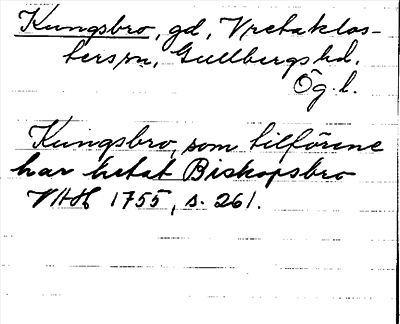 Kungsbro, gd, Vretaklos-
ters sn, Gullbergs hd,
Ög. l.
Kungsbro, som tilförene
har hetat Biskopsbro
VHH 1755, s. 261.